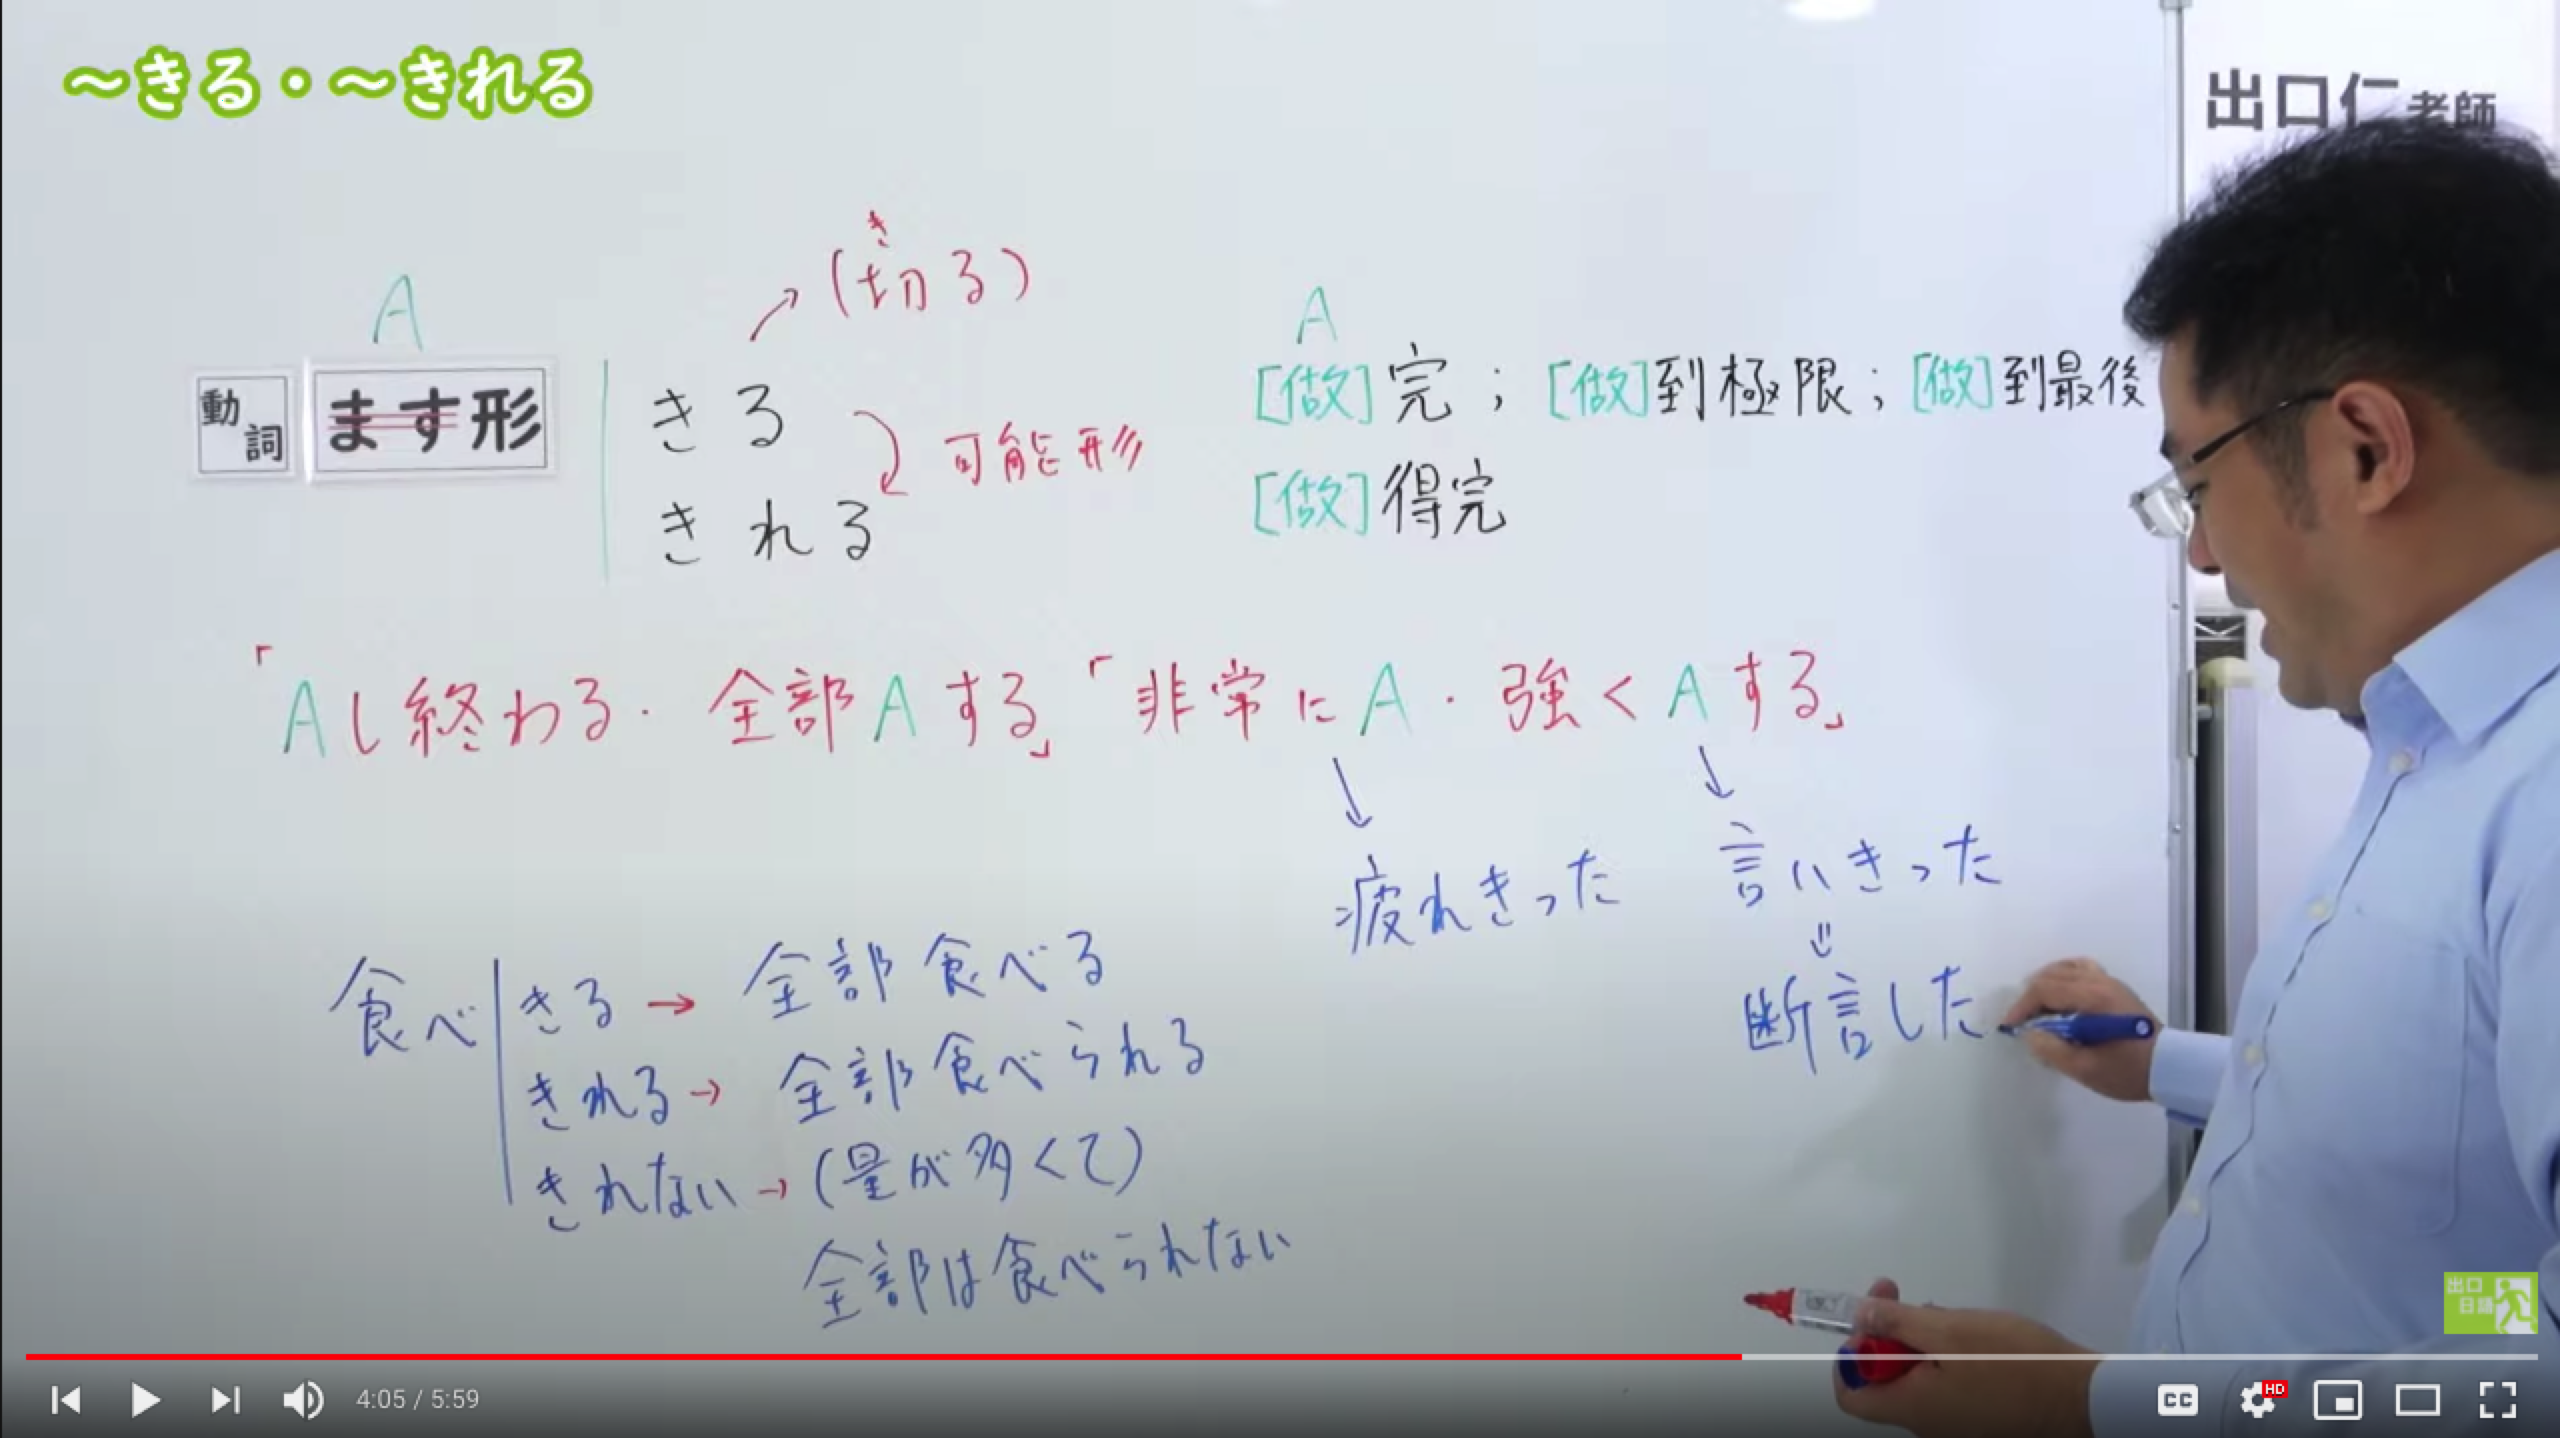 ～きる・～きれる
出口仁老師
き
(切る)
A
動詞 ます形
きる
きれる
可能形
A
[做]完；[做]到極限；[做]到最後
[做]得完
「Aし終わる・全部Aする」「非常にA・強くAする」
疲れきった
言いきった
断言した
食べ
きる→全部食べる
きれる→全部食べられる
きれない→(量が多くて)
全部は食べられない
出口
日語
4:05 / 5:59
CC
HD